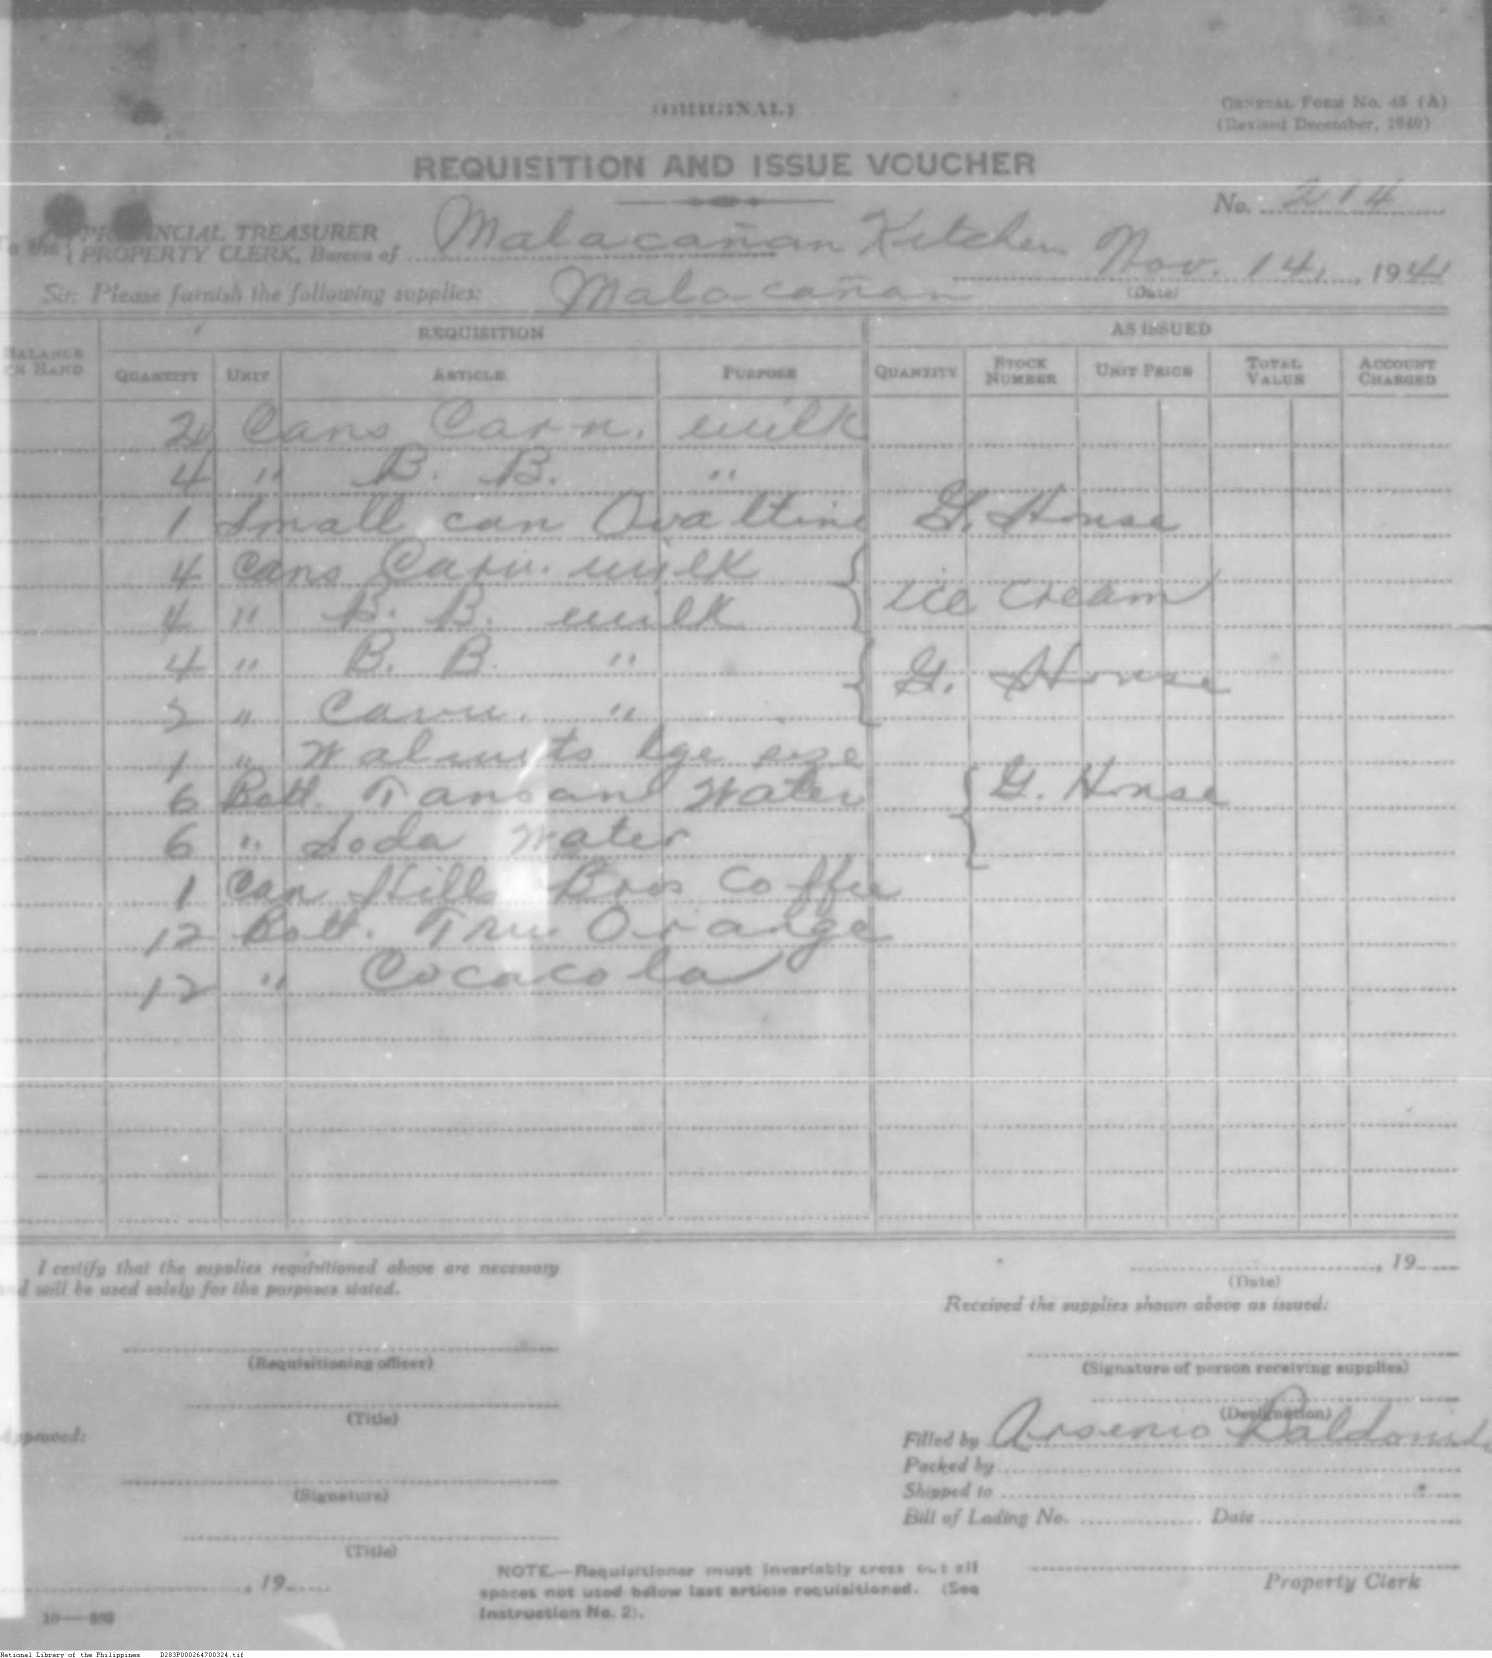 (ORIGINAL)
GENERAL FORM No. 45 (A)
(Revised December, 1940)
REQUISITION AND ISSUE VOUCHER
No. 214
To the { PROVINCIAL TREASURER
PROPERTY CLERK, Bureau of Malacañan Kitchen Nov. 14, 1941
(Date)
Sir: Please furnish the following supplies: Malacañan
REQUISITION AS ISSUED
BALANCE ON HAND QUANTITY UNIT ARTICLE PURPOSE QUANTITY STOCK NUMBER UNIT PRICE TOTAL VALUE ACCOUNT CHARGED
2 Cans Carn. milk
4 " B. B. "
1 Small can Ovaltine G. House
4 Cans Carn. milk
4 " B. B. milk } ice cream
4 " B. B. " { G. House
2 " Carn. "
1 " Walnuts lge size
6 Bott. Tansan Water { G. House
6 " Soda Water
1 Can Hills Bros Coffee
12 Bott. Tru Orange
12 " Cocacola
I certify that the supplies requisitioned above are necessary
and will be used solely for the purposes stated.
, 19
(Date)
Received the supplies shown above as issued:
(Requisitioning officer)
(Signature of person receiving supplies)
(Title)
(Designation)
Approved:
Filled by Arsenio
Packed by
Shipped to
(Signature)
Bill of Lading No. Date
(Title)
, 19
NOTE.—Requisitioner must invariably cross out all
spaces not used below last article requisitioned. (See
Instruction No. 2).
Property Clerk
National Library of the Philippines D283P000264700324.tif